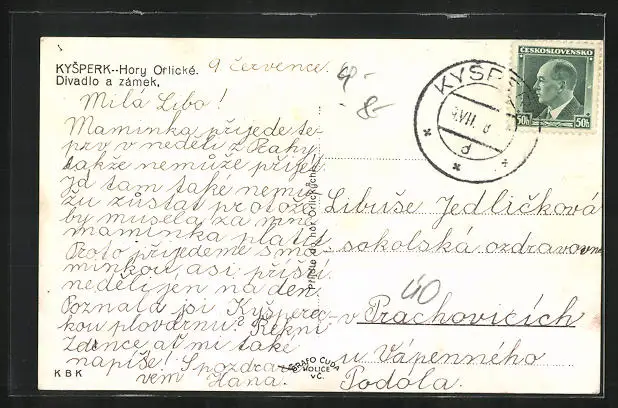 KYŠPERK--Hory Orlické.
Divadlo a zámek.
9 července.
Milá Libo!
Maminka přijede te-
prv v neděli z Prahy
takže nemůže přijeti.
Já tam také nemů-
žu zůstat protože
by musela za mne
maminka platit
Proto přijedeme s ma-
minkou asi příští
neděli jen na den.
Poznala jsi Kyšpere-
kou plovárnu? Řekni
Zdence ať mi také
napíše! S pozdra-
vem Hana.
KBK
Přijďte do hor Orlických!
GRAFO ČUDA
HOLICE
v Č.
ČESKOSLOVENSKO
50h 50h
KYŠPERK
9.VII.
d
40-
-8-
Libuše Jedličková
sokolská ozdravovna
40
v Prachovicích
u Vápenného
Podola.